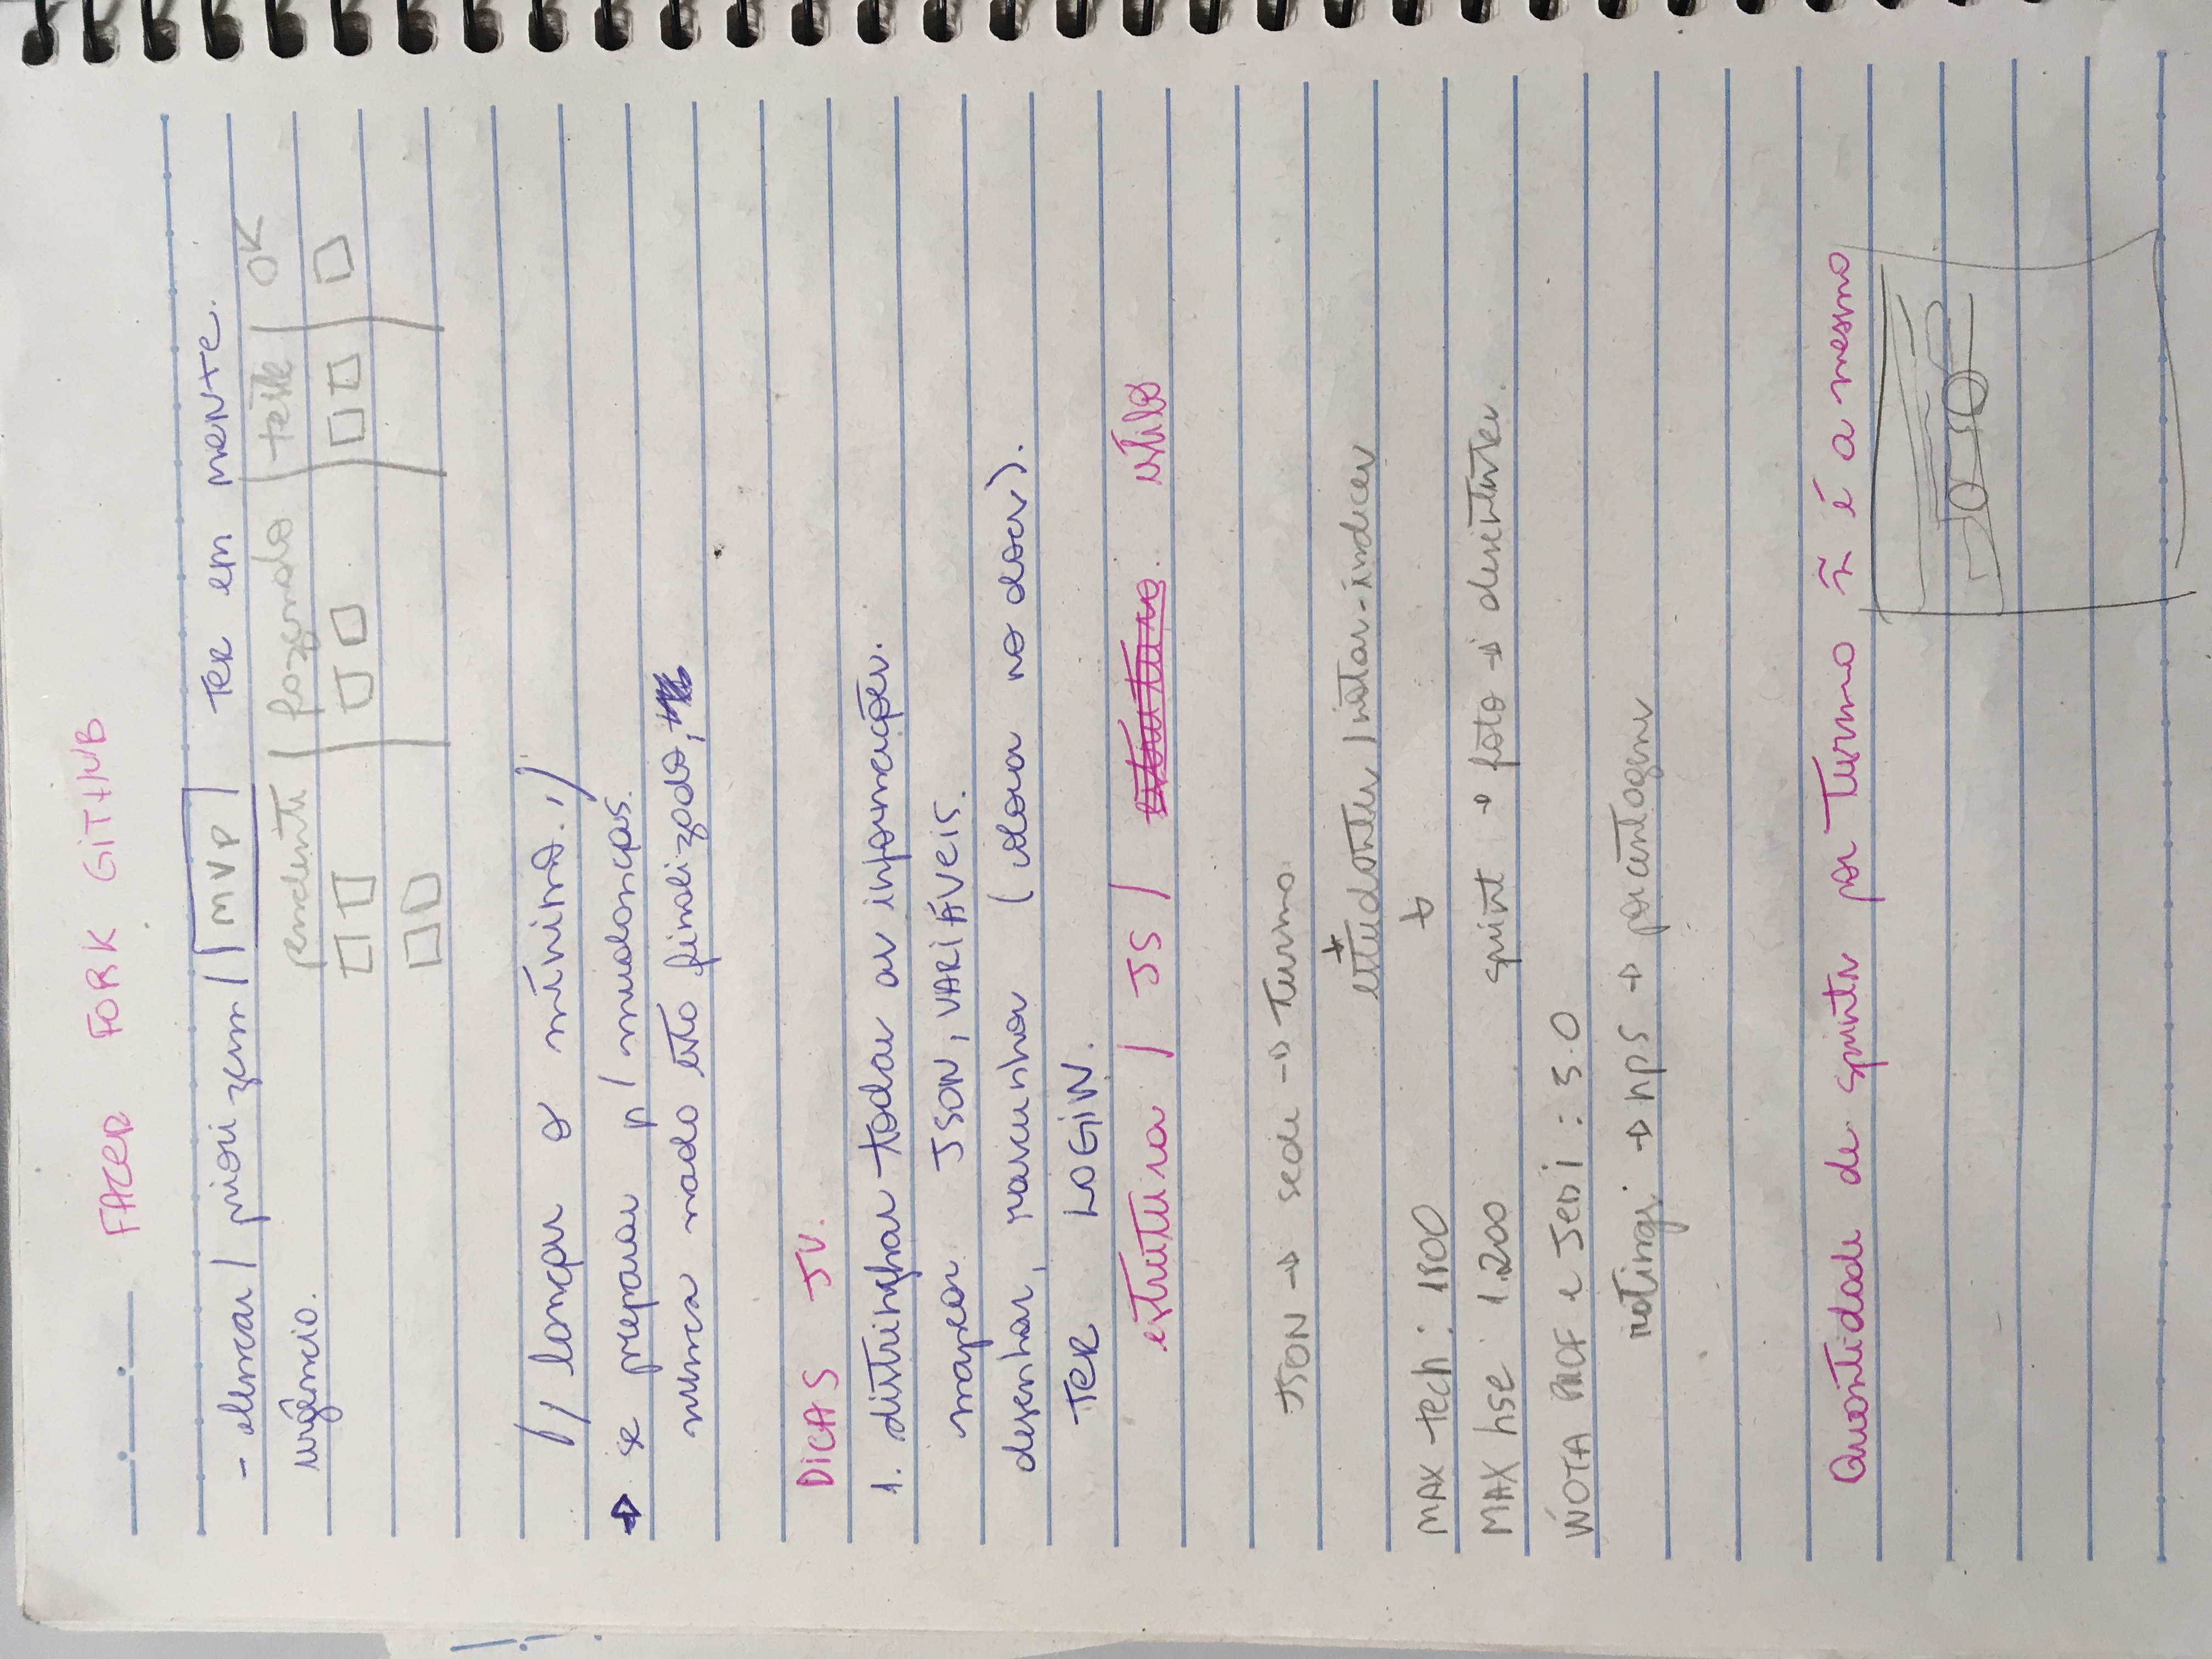 FAZER FORK GITHUB
- elencar / priorizem / MVP TER em mente.
urgência. pendente | fazendo | teste | OK
// lançar o mínimo. //
→ se preparar p/ mudanças.
nunca nada está finalizado,
DICAS JV.
1. distrinchar todas as informações.
mapear JSON, VARIÁVEIS.
desenhar, rascunhar (coloca no docs).
TER LOGIN.
estrutura / JS / estrutura. estilo
JSON → sede → turma
↓
estudantes / notas - indices
MAX tech: 1800 ↓
MAX hse: 1.200 sprint → foto → desistentes.
NOTA PROF e JEDI: 5.0
ratings → nps → porcentagem
Quantidade de sprints por turma ñ é a mesma